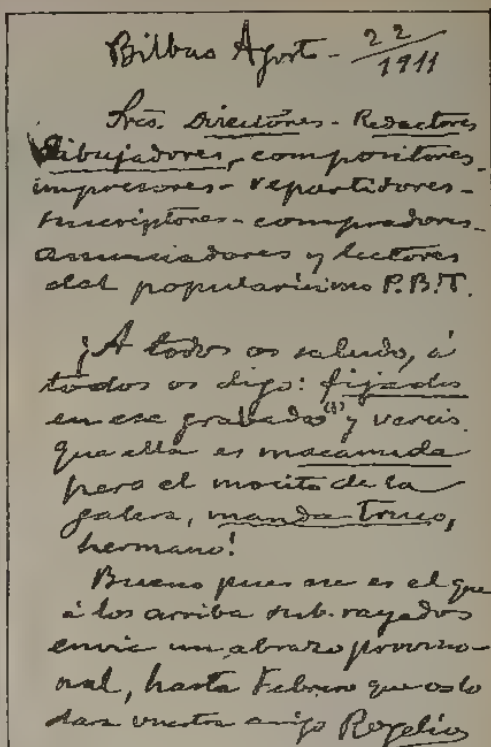 Bilbao Agosto - 22/1911
Sres. Directores - Redactores
Dibujadores, compositores -
impresores - repartidores -
suscriptores - compradores -
anunciadores y lectores
del popularísimo P.B.T.
¡A todos os saludo, á
todos os digo: fijados
en ese grabado (1) y vereis
que ella es macanuda
pero el mocito de la
galera, manda truco,
hermano!
Bueno pues ese es el que
á los arriba sub-rayados
envia un abrazo provisio-
nal, hasta Febrero que os lo
dara vuestro amigo Rogelio